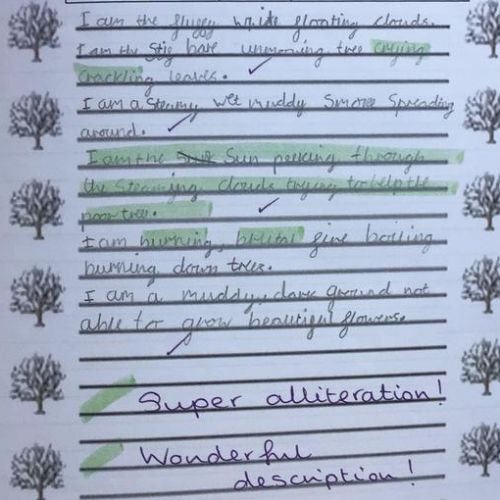 I am the fluggy white floating clouds.
I am the Stig bare unmoving tree crying
crackling leaves.
I am a Steamy wet muddy Smoke Spreading
around.
I am the Sun peeking through
the Steaming Clouds trying to help the
poor tree.
I am burning, brutal fire boiling
burning down trees.
I am a muddy, dark ground not
able to grow beautiful flowers.
Super alliteration!
Wonderful
description!